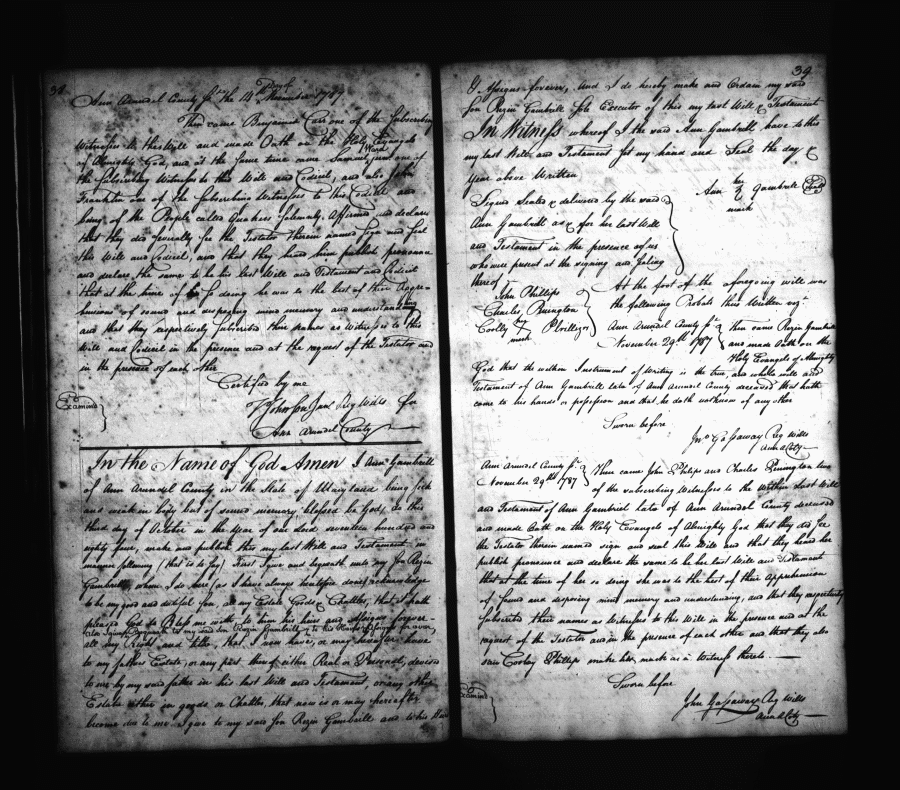 38
Ann Arundel County Sct. the 14th November 1787
Then came Benjamin Carr one of the Subscribing
Witnesses to the Will and made Oath on the Holy Evangels
of Almighty God, and at the same time came Samuel one of
the Subscribing Witnesses to this Will and Codicil, and also John
Franklin one of the Subscribing Witnesses to this Codicil and
being of the People called Quakers Solemnly Affirmed and declare
that they did severally see the Testator therein named sign and seal
this Will and Codicil, and that they heard him publish pronounce
and declare the same to be his last Will and Testament and Codicil
that at the time of his so doing he was to the best of their Appre-
hensions of sound and disposing mind memory and understanding
and that they respectively subscribed their names as Witnesses to this
Will and Codicil in the presence and at the request of the Testator and
in the presence of each other
Certified by me
Johnson Junr Reg Wills for
Ann Arundel County
Examined
In the Name of God Amen I Ann Gambrill
of Ann Arundel County in the State of Maryland being sick
and weak in body but of sound memory blessed be God, do this
third day of October in the Year of our Lord seventeen hundred and
eighty four, make and publish this my last Will and Testament, in
manner following (that is to say) First I give and bequeath unto my Son Rezin
Gambrill, whom I do here, as I have always heretofore done, acknowledge
to be my good and dutiful Son, all my Estate Goods & Chattles, that it hath
pleased God to Bless me with, to him his heirs and Assigns forever-
all my Right and title, that I now have, or may hereafter have
to my fathers Estate, or any part thereof either Real or Personal, devised
to me by my said father in his last Will and Testament, or any other
Estate either in goods or Chattles that now is or may hereafter
become due to me, I give to my said Son Rezin Gambrill and to his Heirs
39
& Assigns forever, And I do hereby make and Ordain my said
Son Rezin Gambrill Sole Executor of this my last Will & Testament
In Witness whereof I the said Ann Gambrill have to this
my last Will and Testament set my hand and Seal the day &
year above Written
Ann her Gambrill Seal
mark
Signed Sealed & delivered by the said
Ann Gambrill as & for her last Will
and Testament in the presence of us
who were present at the signing and Sealing
thereof
John Phillips
Charles Penington
Coolly his Phillips
mark
At the foot of the aforegoing will was
the following Probats thus Written viz.
Ann Arundel County Sct.
November 29th 1787
Then came Rezin Gambrill
and made Oath on the
Holy Evangels of Almighty
God that the within Instrument of Writing is the true and whole will and
Testament of Ann Gambrill late of Ann Arundel County deceased that hath
come to his hands or possession and that he doth not know of any other
Sworn before
Jno Gassaway Reg Wills
Ann A Coty
Ann Arundel County Sct.
November 29th 1787
Then came John Philips and Charles Pennington two
of the subscribing Witnesses to the Within Last Will
and Testament of Ann Gambrill late of Ann Arundel County deceased
and made Oath on the Holy Evangels of Almighty God that they did see
the Testator therein named sign and seal this Will and that they heard her
publish pronounce and declare the same to be her last Will and Testament
that at the time of her so doing she was to the best of their Apprehension
of Sound and disposing mind memory and understanding, and that they respectively
Subscribed their names as Witnesses to this Will in the presence and at the
request of the Testator and in the presence of each other and that they also
saw Cooley Phillips make his mark as a Witness thereto
Sworn before
John Gassaway Reg Wills
Ann A Coty
Examined